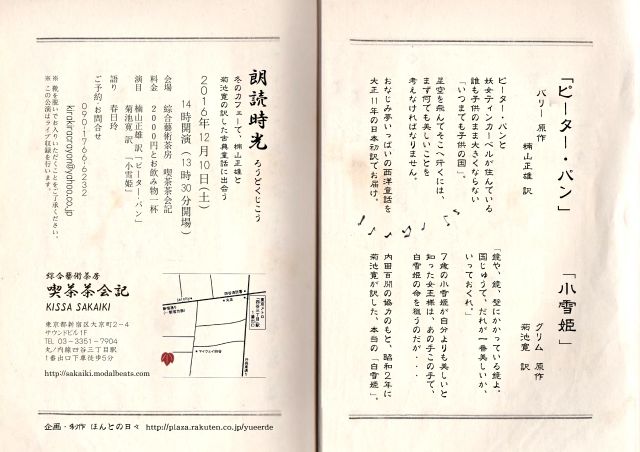 「ピーター・パン」
バリー 原作
楠山正雄 訳
ピーター・パンと
妖女ティンカーベルが住んでいる
誰も子供のまま大きくならない
「いつまでも子供の国」。
星空を飛んでそこへ行くには、
まず何でも美しいことを
考えなければなりません。
おなじみ夢いっぱいの西洋童話を
大正11年の日本初訳でお届け。
「小雪姫」
グリム 原作
菊池寛 訳
「鏡や、鏡、壁にかかっている鏡よ。
国じゅうで、だれが一番美しいか、
いっておくれ。」
7歳の小雪姫が自分よりも美しいと
知った女王様は、あの手この手で、
白雪姫の命を狙うのだが・・・
内田百閒の協力のもと、昭和2年に
菊池寛が訳した、本当の「白雪姫」。
朗読時光 ろうどくじこう
冬のカフェーで、楠山正雄と
菊池寛の訳した古典童話に出会う
2016年12月10日(土)
14時開演(13時30分開場)
会場 綜合藝術茶房 喫茶茶会記
料金 2000円とお飲み物一杯
演目 楠山正雄 訳「ピーター・パン」
菊池寛 訳 「小雪姫」
語り 春日玲
ご予約・お問合せ
090-1766-6232
kirakiraraoyon@yahoo.co.jp
※ 靴を脱いでお入りいただくことをご了承ください。
※ この公演はライブ収録を行います。
綜合藝術茶房
喫茶茶会記
KISSA SAKAIKI
東京都新宿区大京町2-4
サウンドビル1F
TEL 03-3351-7904
丸ノ内線四谷三丁目駅
1番出口下車徒歩5分
http://sakaiki.modalbeats.com
企画・制作 ほんとの日々 http://plaza.rakuten.co.jp/yueerde